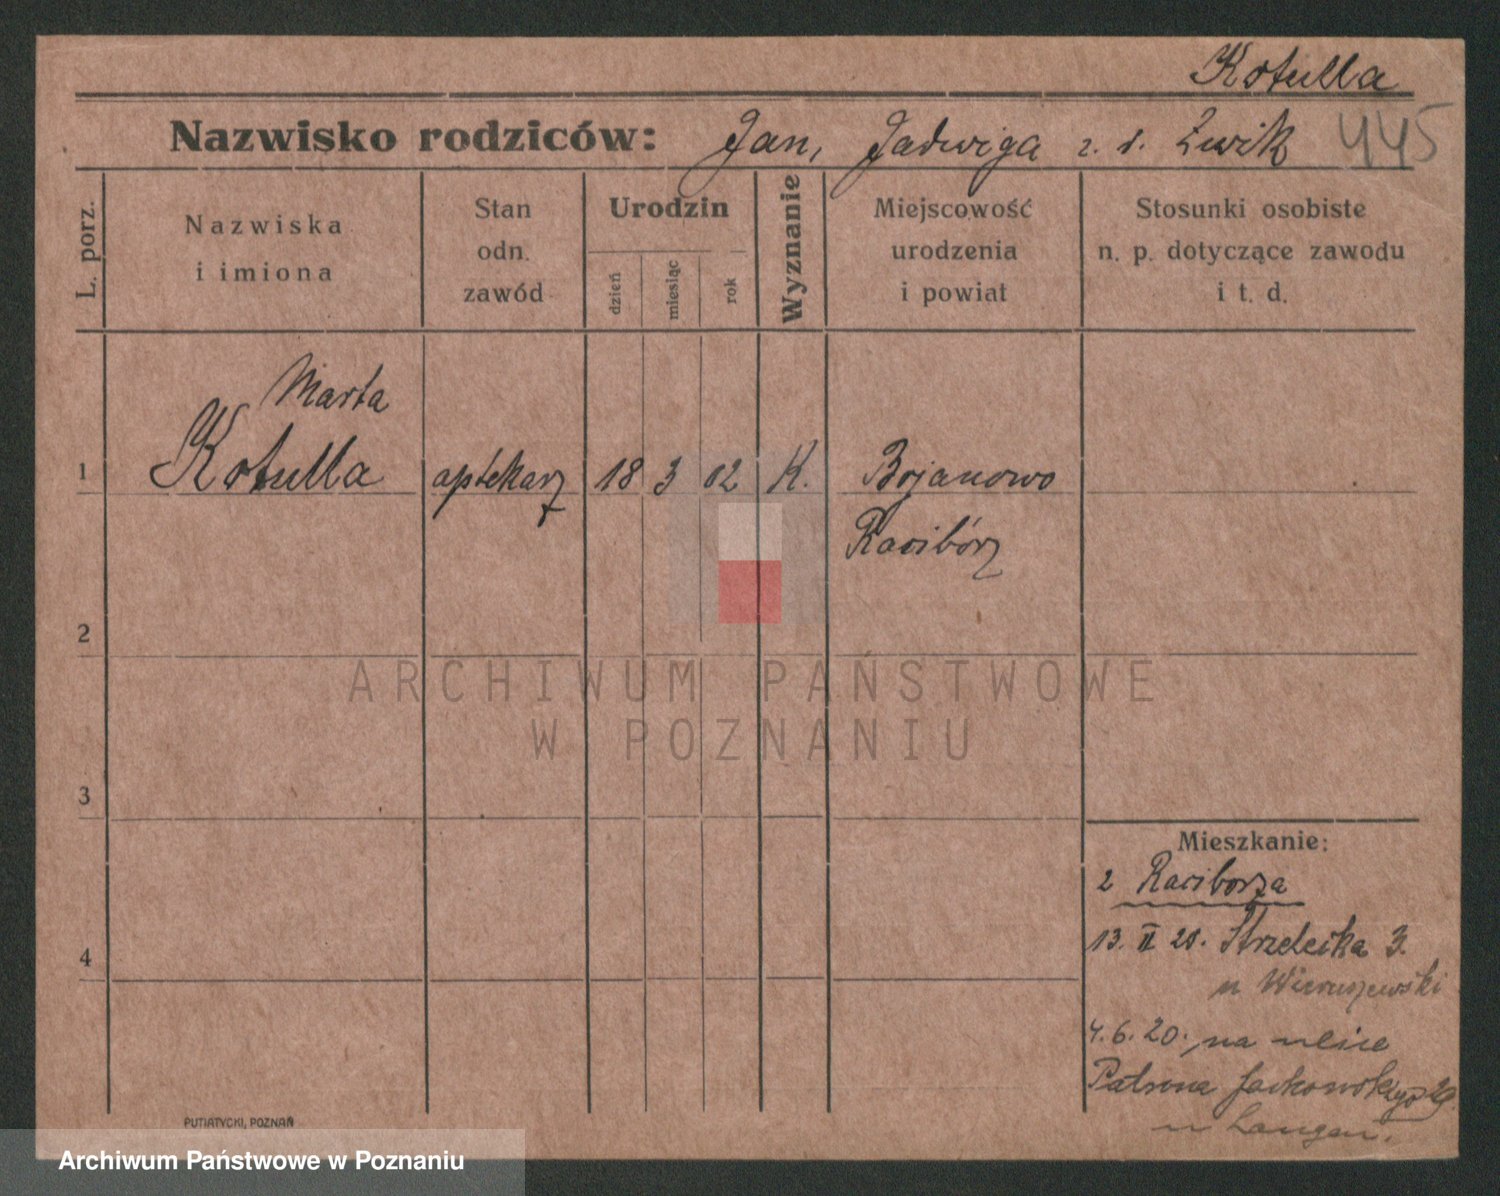 Kotulla
Nazwisko rodziców: Jan, Jadwiga z. d. Żwik 445
L. porz.
Nazwiska
i imiona
Stan
odn.
zawód
Urodzin
dzień
miesiąc
rok
Wyznanie
Miejscowość
urodzenia
i powiat
Stosunki osobiste
n. p. dotyczące zawodu
i t. d.
Marta
1 Kotulla aptekarz 18 3 02 K. Bojanowo
Racibórz
2
ARCHIWUM PAŃSTWOWE
W POZNANIU
3
Mieszkanie:
z Raciborza
4 13. II 20. Strzelecka 3.
u Wieruszewski
4.6.20. na ulice
Patrona Jackowskiego 29
u Langen.
PUTIATYCKI, POZNAŃ
Archiwum Państwowe w Poznaniu